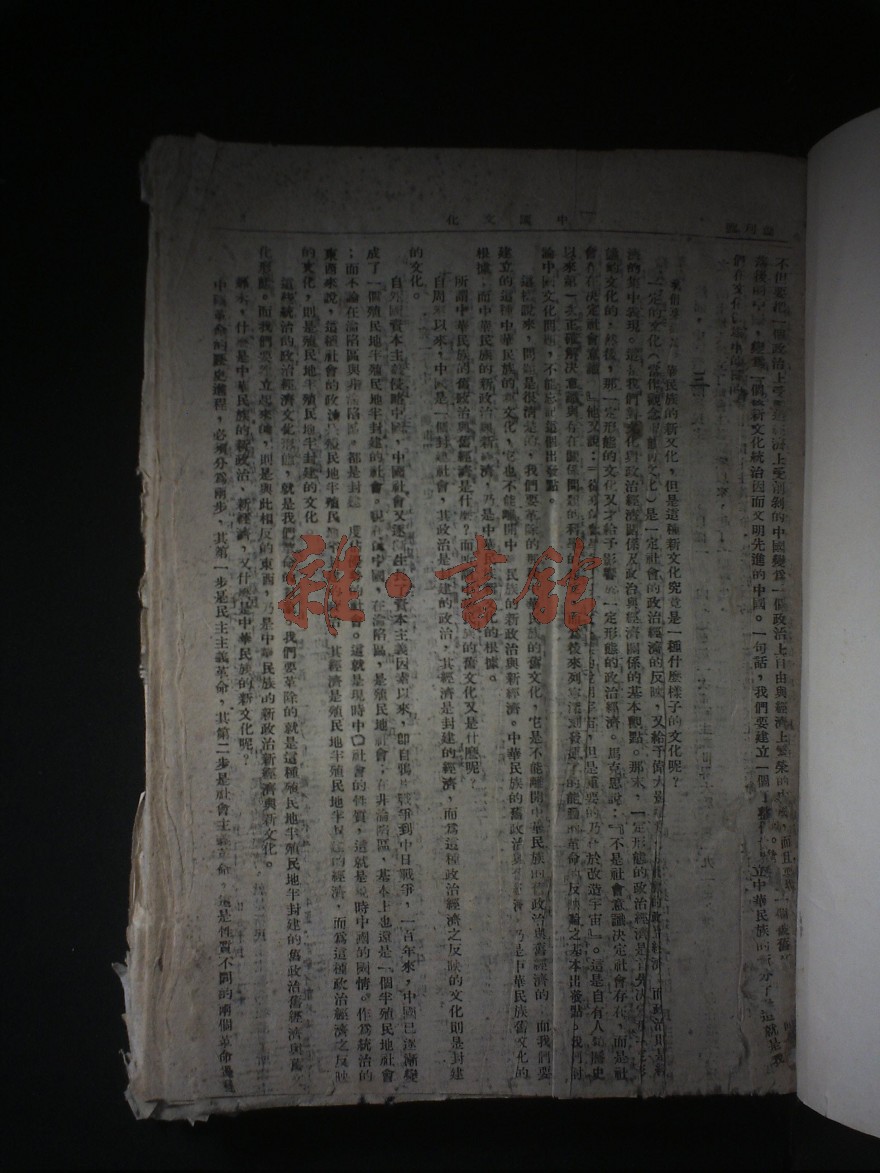 中國文化
創刊號
不但要把一個政治上受經濟上受剝削的中國變為一個政治上自由與經濟上繁榮的中國，而且要
落後的中國，變為一個新文化統治因而文明先進的中國。一句話，我們要建立一個中華民族的新文化，這就是我
們在文化
三
我們華民族的新文化，但是這種新文化究竟是一種什麼樣子的文化呢？
一定的文化（當作觀念文化）是一定社會的政治經濟的反映，又給予偉大影響
濟的集中表現。這是我們對文化與政治經濟關係及政治與經濟關係的基本觀點。那末，一定形態的政治經濟是首先決定
態的文化的，然後，那一定形態的文化又才給予影響於一定形態的政治經濟。馬克思說：「不是社會意識決定社會存在，而是社
會存在決定社會意識」。他又說：但是重要的乃在於改造宇宙』。這是自有人類歷史
以來第一次正確解決意識與存在關係問題的科學，而為後來列寧的能動的革命的反映論之基本出發點。我們討
論中國文化問題，不能忘記這個出發點。
這樣說來，問題是很清楚的，我們要革除的那種中華民族的舊文化，它是不能離開中華民族的舊政治與舊經濟的，而我們要
建立的這種中華民族的新文化，它也不能離開中華民族的新政治與新經濟。中華民族的舊政治與舊經濟，乃是中華民族舊文化的
根據，而中華民族的新政治與新經濟，乃是中華民族新文化的根據。
所謂中華民族的舊政治與舊經濟是什麼？而中華民族的舊文化又是什麼呢？
自周秦以來，中國是一個封建社會，其政治是封建的政治，其經濟是封建的經濟，而為這種政治經濟之反映的文化則是封建
的文化。
自外國資本主義侵略中國，中國社會又逐漸生長了資本主義因素以來，即自鴉片戰爭到中日戰爭，一百年來，中國已逐漸變
成了一個殖民地半殖民地半封建的社會。現在的中國，在淪陷區，是殖民地社會；在非淪陷區，基本上也還是一個半殖民地社會
；而不論在淪陷區與非淪陷區，都是封建社會。這就是現時中國社會的性質，這就是現時中國的國情。作為統治的
東西來說，這種社會的政治是殖民地半殖民地其經濟是殖民地半殖民地半封建的經濟，而為這種政治經濟之反映
的文化，則是殖民地半殖民地半封建的文化。
這些統治的政治經濟文化形態，就是我們革命的我們要革除的就是這種殖民地半殖民地半封建的舊政治舊經濟與舊文
化形態。而我們要建立起來的，則是與此相反的東西，乃是中華民族的新政治新經濟與新文化。
那末，什麼是中華民族的新政治、新經濟，又什麼是中華民族的新文化呢？
中國革命的歷史過程，必須分為兩步，其第一步是民主主義革命，其第二步是社會主義革命，這是性質不同的兩個革命過程
雜·書館